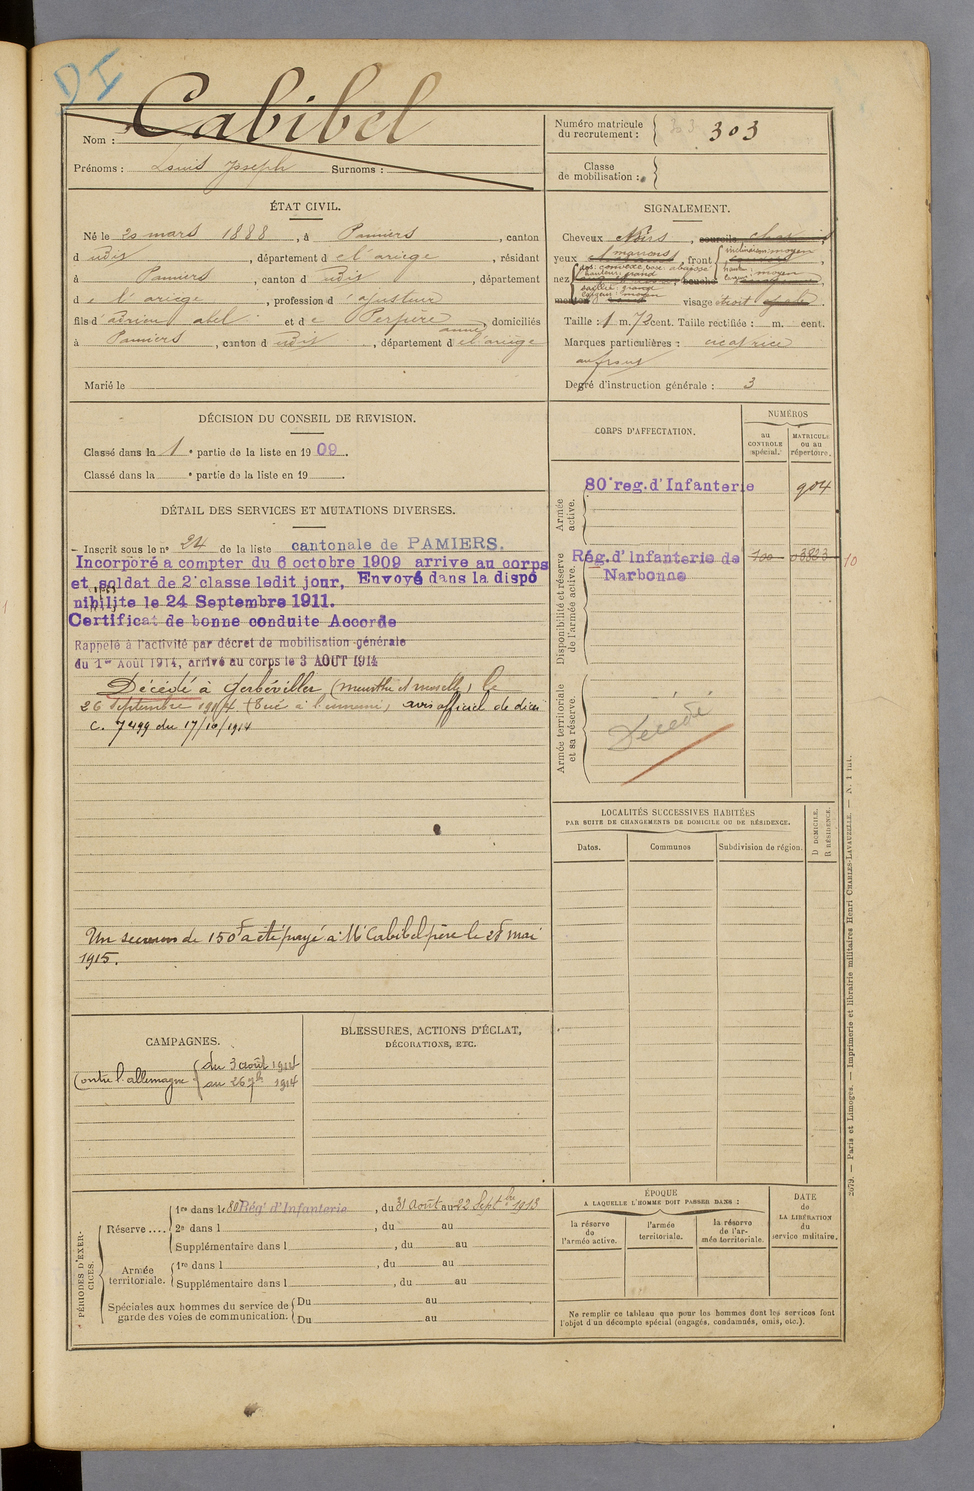 DI
Nom : Cabibel
Prénoms : Louis Joseph Surnoms :
Numéro matricule du recrutement : 303
Classe de mobilisation :
ÉTAT CIVIL.
Né le 20 mars 1888, à Pamiers, canton
d udit, département de l'ariège, résidant
à Pamiers, canton d udit, département
de l'ariège, profession d'ajusteur
fils d'adrien abel et de Perpère anne, domiciliés
à Pamiers, canton d udit, département de l'ariège
Marié le
SIGNALEMENT.
Cheveux Noirs, sourcils
yeux marrons, front inclinaison : moyen
hauteur : moyen
nez dos : convexe base : abaissé
hauteur : grand
saillie : grande
largeur : moyen
bouche
menton visage étroit
Taille : 1 m. 73 cent. Taille rectifiée : m. cent.
Marques particulières : cicatrice
au front
Degré d'instruction générale : 3
DÉCISION DU CONSEIL DE REVISION.
Classé dans la 1e partie de la liste en 1909.
Classé dans la e partie de la liste en 19 .
DÉTAIL DES SERVICES ET MUTATIONS DIVERSES.
Inscrit sous le n° 24 de la liste cantonale de PAMIERS.
Incorporé a compter du 6 octobre 1909 arrive au corps
et soldat de 2e classe ledit jour, Envoyé dans la dispo
nibilite le 24 Septembre 1911.
Certificat de bonne conduite Accorde
Rappelé à l'activité par décret de mobilisation générale
du 1er Août 1914, arrivé au corps le 3 AOUT 1914
Décédé à Gerbéviller (Meurthe et moselle) le
26 Septembre 1914 (Tué à l'ennemi) avis officiel de décès
C. 7499 du 17/10/1914
Un secours de 150f a été payé à Mr Cabibel père le 28 mai
1915.
CORPS D'AFFECTATION.
NUMÉROS
au CONTROLE spécial.
MATRICULE ou au répertoire.
Armée active.
80e reg. d'Infanterie 904
Disponibilité et réserve de l'armée active.
Rég. d'Infanterie de 10
Narbonne
Armée territoriale et sa réserve.
Décédé
LOCALITÉS SUCCESSIVES HABITÉES
PAR SUITE DE CHANGEMENTS DE DOMICILE OU DE RÉSIDENCE.
Dates.
Communes
Subdivision de région.
D DOMICILE.
R RÉSIDENCE.
CAMPAGNES.
Contre l'allemagne du 3 août 1914
au 26 7bre 1914
BLESSURES, ACTIONS D'ÉCLAT,
DÉCORATIONS, ETC.
PÉRIODES D'EXERCICES.
Réserve .... 1re dans le 80e Rég' d'Infanterie, du 31 Août au 22 Septbre 1913
2e dans l , du au
Supplémentaire dans l , du au
Armée territoriale. 1re dans l , du au
Supplémentaire dans l , du au
Spéciales aux hommes du service de garde des voies de communication. Du au
Du au
ÉPOQUE
A LAQUELLE L'HOMME DOIT PASSER DANS :
la réserve de l'armée active.
l'armée territoriale.
la réserve de l'armée territoriale.
DATE de LA LIBÉRATION du service militaire.
Ne remplir ce tableau que pour les hommes dont les services font
l'objet d'un décompte spécial (engagés, condamnés, omis, etc.).
2079. — Paris et Limoges. — Imprimerie et librairie militaires Henri CHARLES-LAVAUZELLE. — N. 1 int.